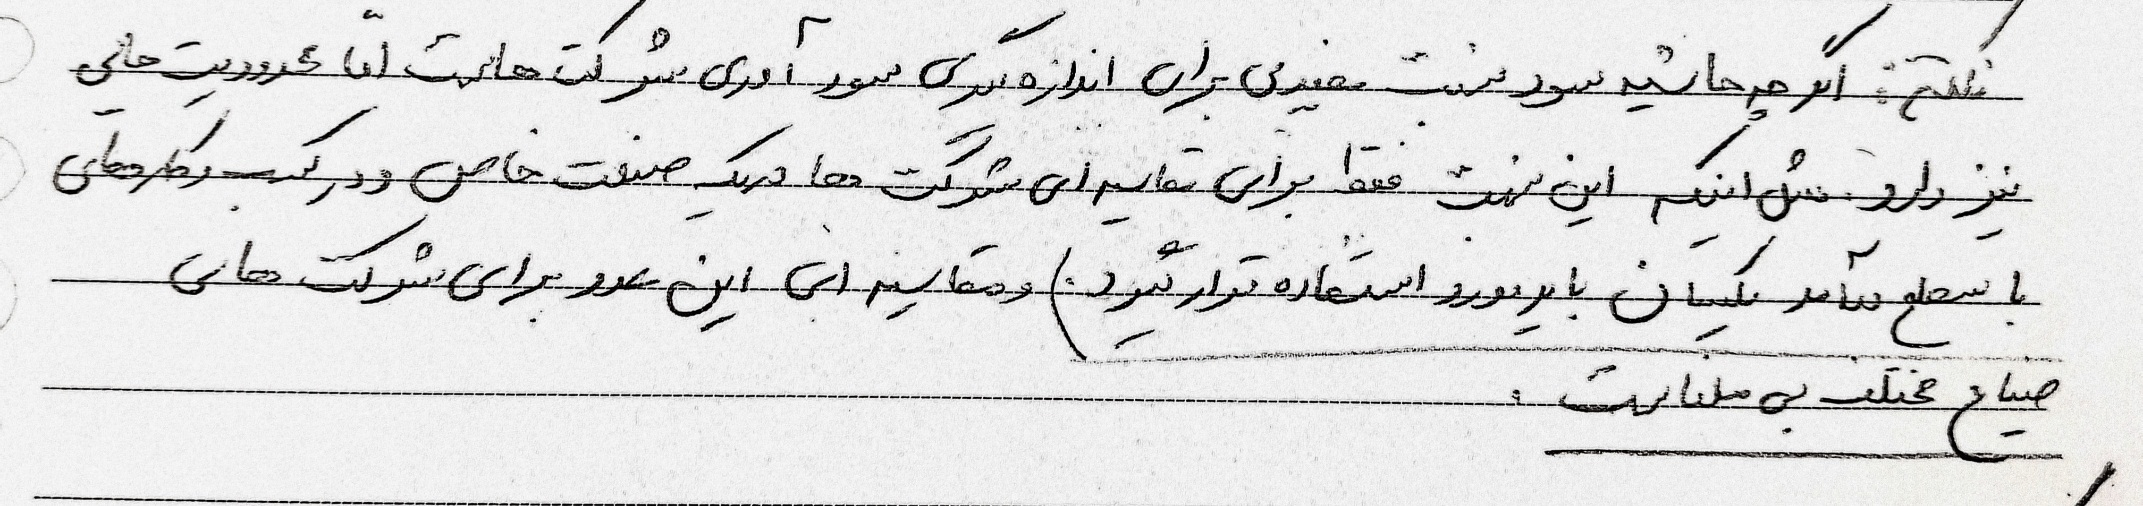 نکته: اگرچه حاشیه سود نسبت مفیدی برای اندازه گیری سود آوری شرکت هاست امّا محدودیت هایی
نیز دارد. مثل اینکه این نسبت فقط برای مقایسه ای شرکت ها در یک صنعت خاص و در کسب و کارهای
با سطح درآمد یکسان باید مورد استفاده قرار گیرد.) و مقایسه ای این عدد برای شرکت های
صنایع مختلف بی معنا است.